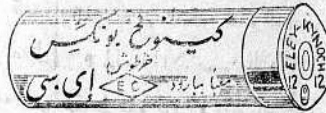 كينوخ بونكس
خرطوش
معبأ ببارود EC إى سى
ELEY-KYNOCH
12 12